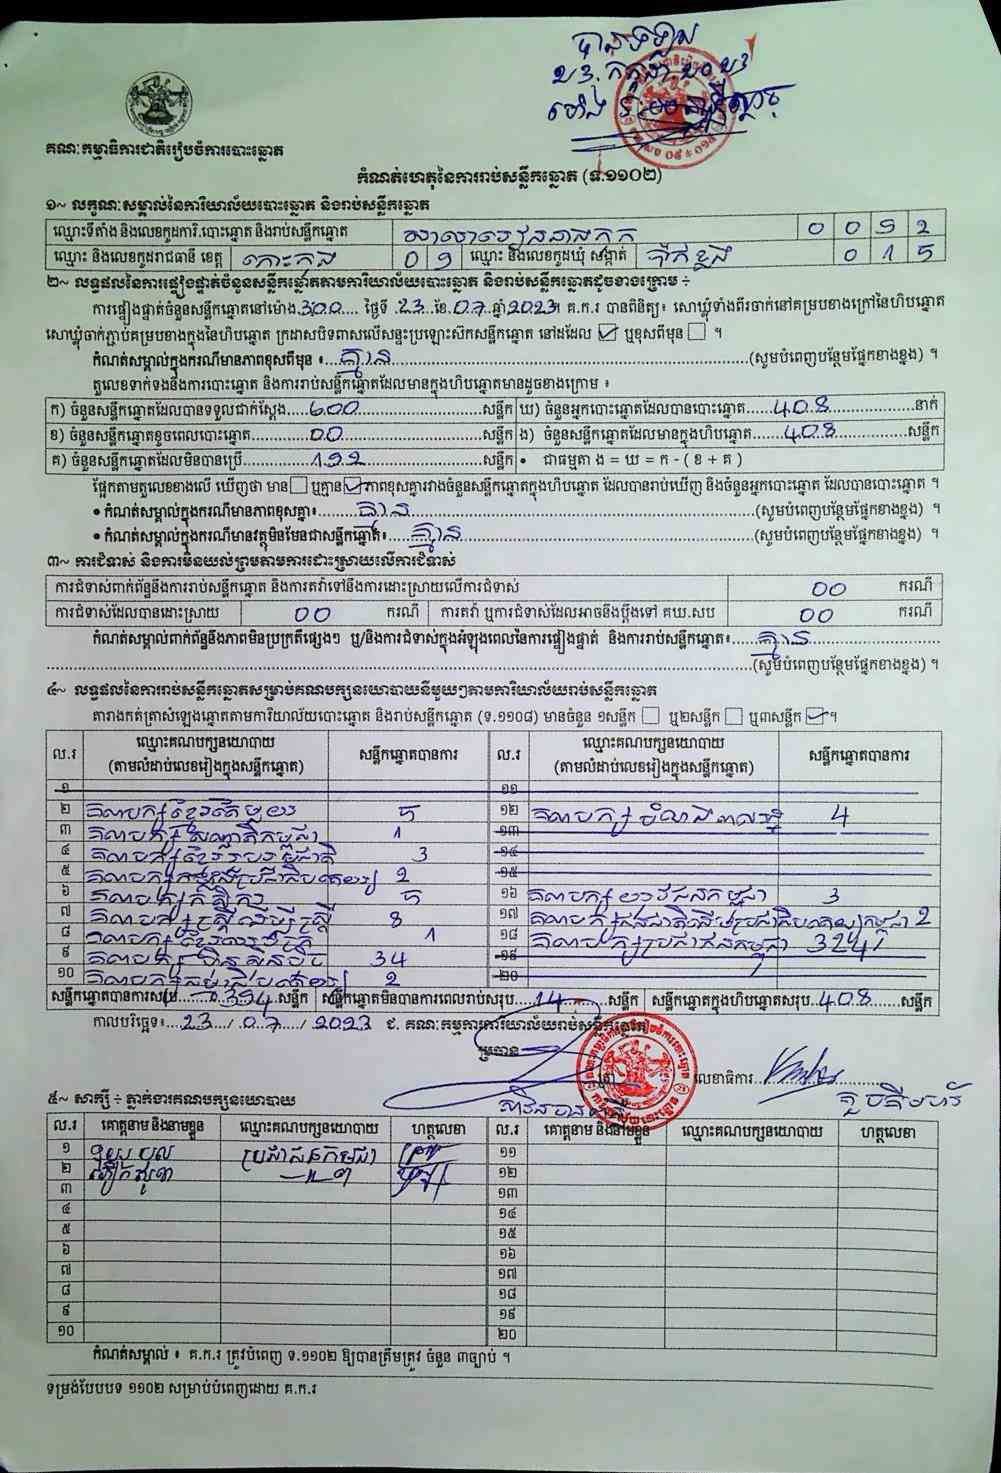 បានទទួល
23.កក្កដា.2023
គណៈកម្មាធិការជាតិរៀបចំការបោះឆ្នោត
កំណត់ហេតុនៃការរាប់សន្លឹកឆ្នោត (ទ.១១០២)
១~ លក្ខណៈសម្គាល់នៃការិយាល័យបោះឆ្នោត និងរាប់សន្លឹកឆ្នោត
ឈ្មោះទីតាំង និងលេខកូដការិ.បោះឆ្នោត និងរាប់សន្លឹកឆ្នោត សាលារៀន 0 0 9 2
ឈ្មោះ និងលេខកូដរាជធានី ខេត្ត កោះកុង 0 9 ឈ្មោះ និងលេខកូដឃុំ សង្កាត់ ប៉ាក់ខ្លង 0 1 5
២~ លទ្ធផលនៃការផ្ទៀងផ្ទាត់ចំនួនសន្លឹកឆ្នោតតាមការិយាល័យបោះឆ្នោត និងរាប់សន្លឹកឆ្នោតដូចខាងក្រោម ÷
ការផ្ទៀងផ្ទាត់ចំនួនសន្លឹកឆ្នោតនៅម៉ោង 3:00 ថ្ងៃទី 23 ខែ 07 ឆ្នាំ 2023។ គ.ក.រ បានពិនិត្យ៖ សោឃ្លុំទាំងពីរចាក់នៅគម្របខាងក្រៅនៃហិបឆ្នោត
សោឃ្លុំចាក់ភ្ជាប់គម្របខាងក្នុងនៃហិបឆ្នោត ក្រដាសបិទពាសលើសន្ទះប្រឡោះស៊កសន្លឹកឆ្នោត នៅដដែល ☑ ឬខុសពីមុន ☐ ។
កំណត់សម្គាល់ក្នុងករណីមានភាពខុសពីមុន ៖ គ្មាន (សូមបំពេញបន្ថែមផ្នែកខាងខ្នង) ។
តួលេខទាក់ទងនឹងការបោះឆ្នោត និងការរាប់សន្លឹកឆ្នោតដែលមានក្នុងហិបឆ្នោតមានដូចខាងក្រោម ៖
ក) ចំនួនសន្លឹកឆ្នោតដែលបានទទួលជាក់ស្តែង 600 សន្លឹក ឃ) ចំនួនអ្នកបោះឆ្នោតដែលបានបោះឆ្នោត 408 នាក់
ខ) ចំនួនសន្លឹកឆ្នោតខូចពេលបោះឆ្នោត 00 សន្លឹក ង) ចំនួនសន្លឹកឆ្នោតដែលមានក្នុងហិបឆ្នោត 408 សន្លឹក
គ) ចំនួនសន្លឹកឆ្នោតដែលមិនបានប្រើ 192 សន្លឹក • ជាធម្មតា ង = ឃ = ក - ( ខ + គ )
ផ្អែកតាមតួលេខខាងលើ ឃើញថា មាន ☐ ឬគ្មាន ☑ ភាពខុសគ្នារវាងចំនួនសន្លឹកឆ្នោតក្នុងហិបឆ្នោត ដែលបានរាប់ឃើញ និងចំនួនអ្នកបោះឆ្នោត ដែលបានបោះឆ្នោត ។
• កំណត់សម្គាល់ក្នុងករណីមានភាពខុសគ្នា៖ គ្មាន (សូមបំពេញបន្ថែមផ្នែកខាងខ្នង) ។
• កំណត់សម្គាល់ក្នុងករណីមានវត្ថុមិនមែនជាសន្លឹកឆ្នោត៖ គ្មាន (សូមបំពេញបន្ថែមផ្នែកខាងខ្នង) ។
៣~ ការជំទាស់ និងការមិនយល់ព្រមតាមការដោះស្រាយលើការជំទាស់
ការជំទាស់ពាក់ព័ន្ធនឹងការរាប់សន្លឹកឆ្នោត និងការតវ៉ាទៅនឹងការដោះស្រាយលើការជំទាស់ 00 ករណី
ការជំទាស់ដែលបានដោះស្រាយ 00 ករណី ការតវ៉ា ឬការជំទាស់ដែលអាចនឹងប្តឹងទៅ គឃ.សប 00 ករណី
កំណត់សម្គាល់ពាក់ព័ន្ធនឹងភាពមិនប្រក្រតីផ្សេងៗ ឬ/និងការជំទាស់ក្នុងអំឡុងពេលនៃការផ្ទៀងផ្ទាត់ និងការរាប់សន្លឹកឆ្នោត៖ គ្មាន
(សូមបំពេញបន្ថែមផ្នែកខាងខ្នង) ។
៤~ លទ្ធផលនៃការរាប់សន្លឹកឆ្នោតសម្រាប់គណបក្សនយោបាយនីមួយៗតាមការិយាល័យរាប់សន្លឹកឆ្នោត
តារាងកត់ត្រាសំឡេងឆ្នោតតាមការិយាល័យបោះឆ្នោត និងរាប់សន្លឹកឆ្នោត (ទ.១១០៨) មានចំនួន ១សន្លឹក ☐ ឬ២សន្លឹក ☐ ឬ៣សន្លឹក ☑ ។
ល.រ ឈ្មោះគណបក្សនយោបាយ (តាមលំដាប់លេខរៀងក្នុងសន្លឹកឆ្នោត) សន្លឹកឆ្នោតបានការ ល.រ ឈ្មោះគណបក្សនយោបាយ (តាមលំដាប់លេខរៀងក្នុងសន្លឹកឆ្នោត) សន្លឹកឆ្នោតបានការ
១ ១១
២ គណបក្សខ្មែរតែមួយ 5 ១២ គណបក្ស 4
៣ គណបក្ស 1 ១៣
៤ គណបក្សខ្មែររួបរួមជាតិ 3 ១៤
៥ គណបក្ស 2 ១៥
៦ គណបក្សកសិករ 5 ១៦ គណបក្សយុវជនកម្ពុជា 3
៧ គណបក្សស្ត្រីដើម្បីស្ត្រី 8 ១៧ គណបក្ស 2
៨ គណបក្សខ្មែរ 1 ១៨ គណបក្សប្រជាជនកម្ពុជា 324
៩ គណបក្សហ្វ៊ុនស៊ិនប៉ិច 34 ១៩
១០ គណបក្ស 2 ២០
សន្លឹកឆ្នោតបានការសរុប 394 សន្លឹក សន្លឹកឆ្នោតមិនបានការពេលរាប់សរុប 14 សន្លឹក សន្លឹកឆ្នោតក្នុងហិបឆ្នោតសរុប 408 សន្លឹក
កាលបរិច្ឆេទ៖ 23 / 07 / 2023 ជ. គណៈកម្មការការិយាល័យរាប់សន្លឹកឆ្នោត
ប្រធាន
លេខាធិការ
៥~ សាក្សី ÷ ភ្នាក់ងារគណបក្សនយោបាយ
ល.រ គោត្តនាម និងនាមខ្លួន ឈ្មោះគណបក្សនយោបាយ ហត្ថលេខា ល.រ គោត្តនាម និងនាមខ្លួន ឈ្មោះគណបក្សនយោបាយ ហត្ថលេខា
១ ប្រជាជនកម្ពុជា ១១
២ ១២
៣ ១៣
៤ ១៤
៥ ១៥
៦ ១៦
៧ ១៧
៨ ១៨
៩ ១៩
១០ ២០
កំណត់សម្គាល់ ៖ គ.ក.រ ត្រូវបំពេញ ទ.១១០២ ឱ្យបានត្រឹមត្រូវ ចំនួន ៣ច្បាប់ ។
ទម្រង់បែបបទ ១១០២ សម្រាប់បំពេញដោយ គ.ក.រ